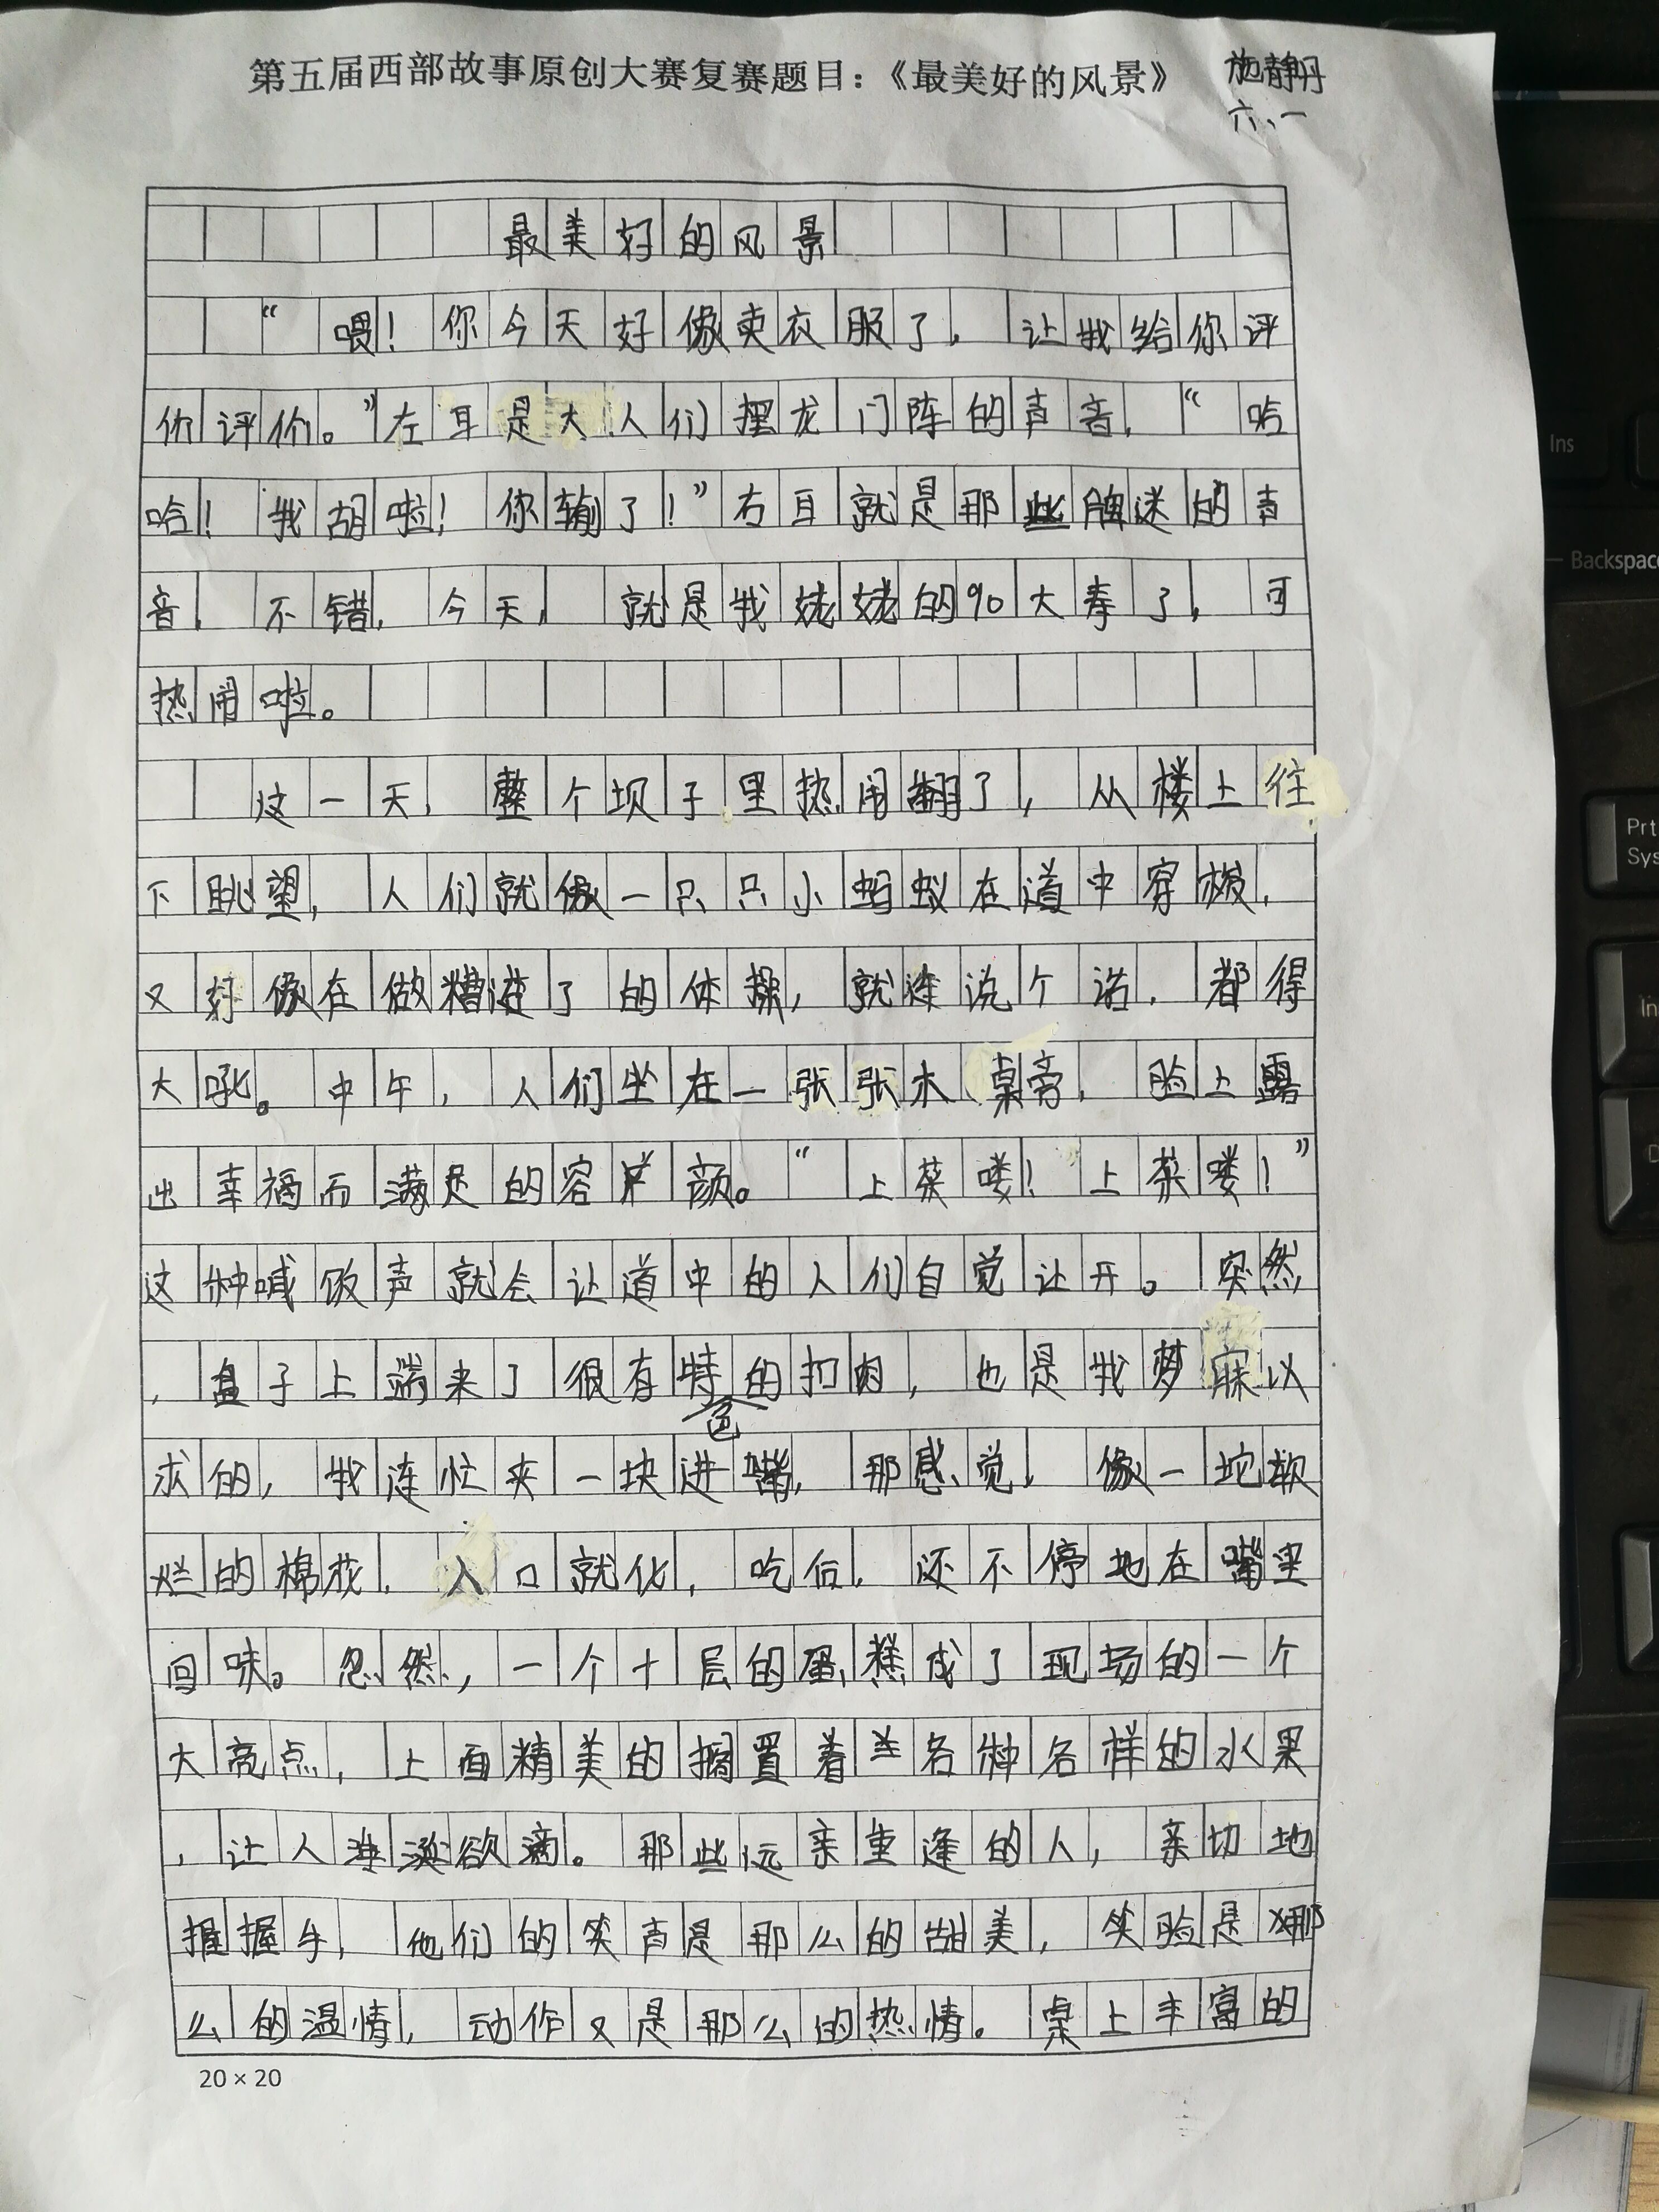 第五届西部故事原创大赛复赛题目：《最美好的风景》
施静丹
六、一
最美好的风景
“喂！你今天好像卖衣服了，让我给你评
价评价。”左耳是大人们摆龙门阵的声音，“哈
哈！我胡啦！你输了！”右耳就是那些牌迷的声
音，不错，今天，就是我姥姥的90大寿了，可
热闹啦。
这一天，整个坝子里热闹翻了，从楼上往
下眺望，人们就像一只只小蚂蚁在道中穿梭，
又好像在做糟透了的体操，就连说个话，都得
大吼。中午，人们坐在一张张木桌旁，脸上露
出幸福而满足的容颜。“上菜喽！上菜喽！”
这种喊饭声就会让道中的人们自觉让开。突然
，盘子上端来了很有特色的扣肉，也是我梦寐以
求的，我连忙夹一块进嘴，那感觉，像一坨软
烂的棉花，入口就化，吃后，还不停地在嘴里
回味。忽然，一个十层的蛋糕成了现场的一个
大亮点，上面精美的搁置着各种各样的水果
，让人涎欲滴。那些远亲重逢的人，亲切地
握握手，他们的笑声是那么的甜美，笑脸是那
么的温情，动作又是那么的热情。桌上丰富的
20×20
Ins
Backspace
Prt
Sys
In
D